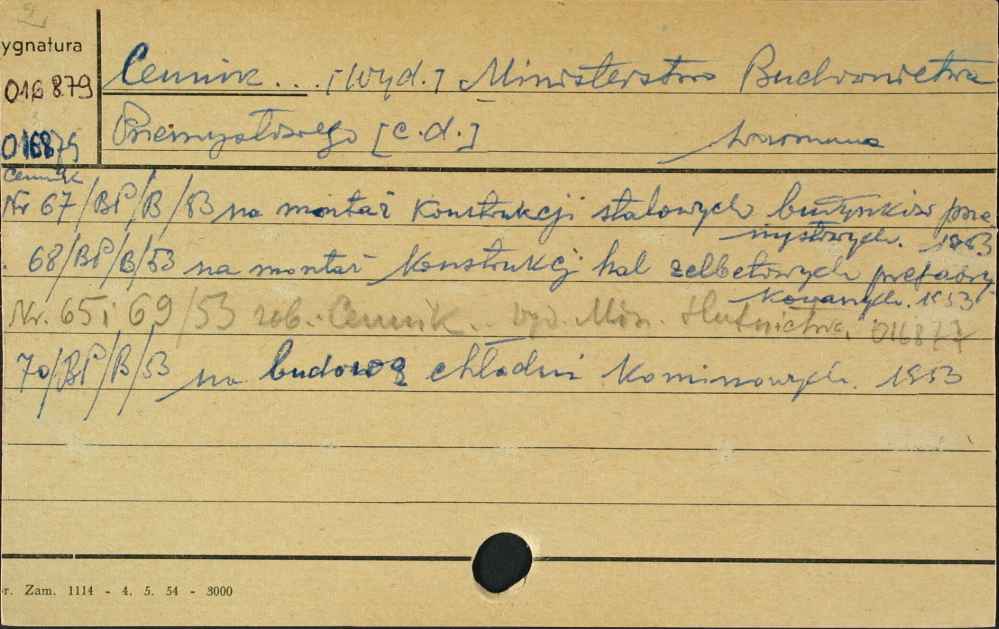 2
ygnatura
016879
Cennik... [Wyd.] Ministerstwo Budownictwa
016879
Przemysłowego [c.d.] Warszawa
Cennik
Nr 67/BP/B/53 na montaż konstrukcji stalowych budynków prze
mysłowych. 1953
68/BP/B/53 na montaż konstrukcji hal żelbetowych prefabry
kowanych. 1953
Nr. 65 i 69/53 zob. Cennik.. Wyd. Min. Hutnictwa. 016877
70/BP/B/53 na budowę chłodni kominowych. 1953
r. Zam. 1114 - 4. 5. 54 - 3000